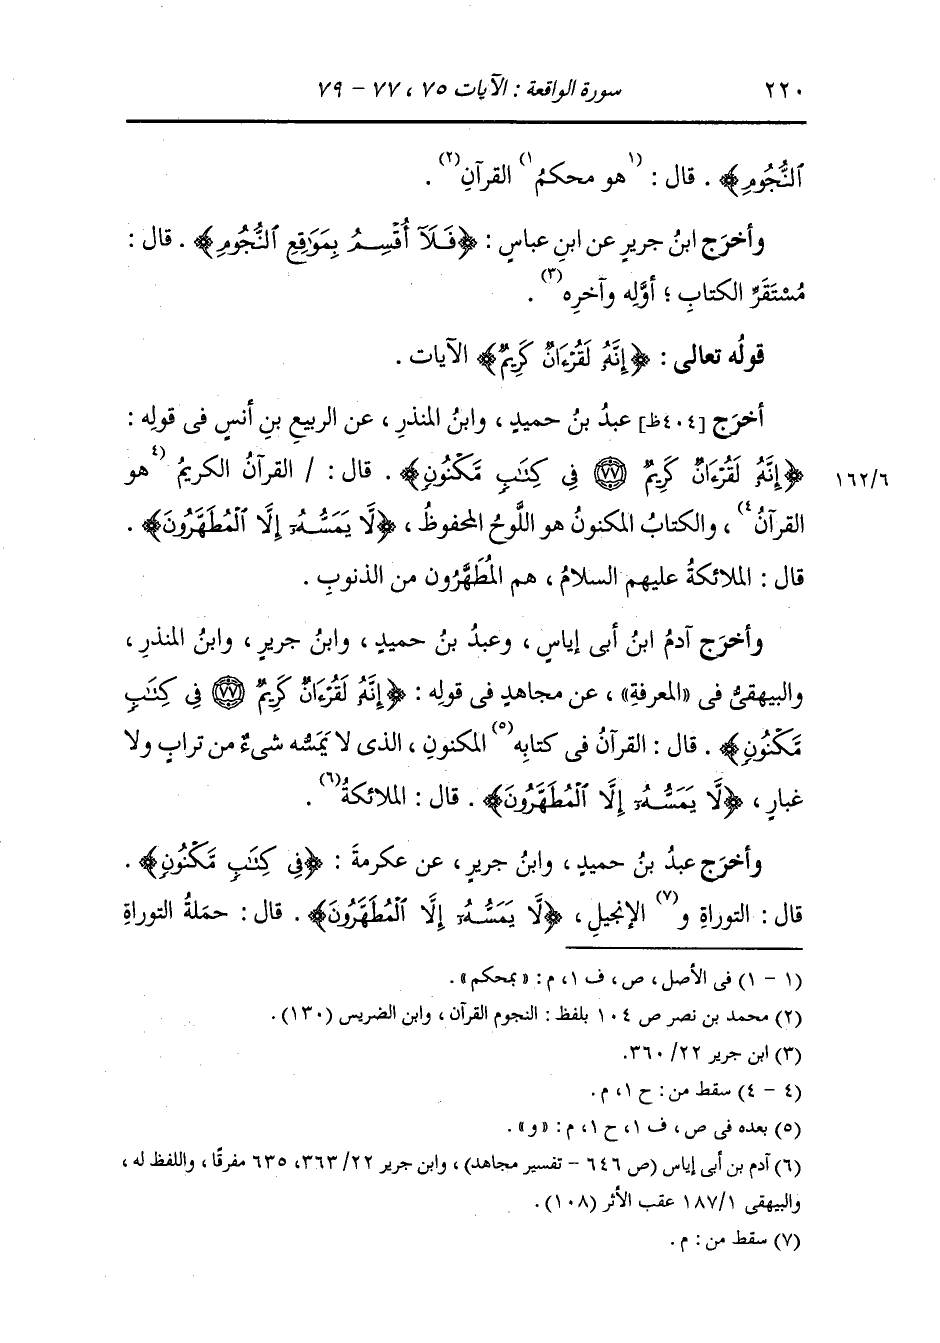 ٢٢٠ سورة الواقعة : الآيات ٧٥ ، ٧٧ - ٧٩
ٱلنُّجُومِ﴾ . قال : (١هو محكمُ١) القرآنِ(٢) .
وأخرَج ابنُ جريرٍ عن ابنِ عباسٍ : ﴿فَلَآ أُقْسِمُ بِمَوَٰقِعِ ٱلنُّجُومِ﴾ . قال :
مُسْتَقَرِّ الكتابِ ؛ أوَّلِه وآخرِه(٣) .
قولُه تعالى : ﴿إِنَّهُۥ لَقُرْءَانٌ كَرِيمٌ﴾ الآيات .
أخرَج [٤٠٤ظ] عبدُ بنُ حميدٍ ، وابنُ المنذرِ ، عن الربيعِ بنِ أنسٍ فى قولِه :
﴿إِنَّهُۥ لَقُرْءَانٌ كَرِيمٌ ٧٧ فِى كِتَٰبٍ مَّكْنُونٍ﴾ . قال : / القرآنُ الكريمُ (٤هو
١٦٢/٦
القرآنُ٤) ، والكتابُ المكنونُ هو اللَّوحُ المحفوظُ ، ﴿لَّا يَمَسُّهُۥٓ إِلَّا ٱلْمُطَهَّرُونَ﴾ .
قال : الملائكةُ عليهم السلامُ ، هم المُطَهَّرُون من الذنوبِ .
وأخرَج آدمُ ابنُ أبى إياسٍ ، وعبدُ بنُ حميدٍ ، وابنُ جريرٍ ، وابنُ المنذرِ ،
والبيهقىُّ فى «المعرفةِ» ، عن مجاهدٍ فى قولِه : ﴿إِنَّهُۥ لَقُرْءَانٌ كَرِيمٌ ٧٧ فِى كِتَٰبٍ
مَّكْنُونٍ﴾ . قال : القرآنُ فى كتابِه(٥) المكنونِ ، الذى لا يَمَسُّه شىءٌ من ترابٍ ولا
غبارٍ ، ﴿لَّا يَمَسُّهُۥٓ إِلَّا ٱلْمُطَهَّرُونَ﴾ . قال : الملائكةُ(٦) .
وأخرَج عبدُ بنُ حميدٍ ، وابنُ جريرٍ ، عن عكرمةَ : ﴿فِى كِتَٰبٍ مَّكْنُونٍ﴾ .
قال : التوراةِ و(٧) الإنجيلِ ، ﴿لَّا يَمَسُّهُۥٓ إِلَّا ٱلْمُطَهَّرُونَ﴾ . قال : حمَلةُ التوراةِ
(١ - ١) فى الأصل ، ص ، ف ١ ، م : «بمحكم» .
(٢) محمد بن نصر ص ١٠٤ بلفظ : النجوم القرآن ، وابن الضريس (١٣٠) .
(٣) ابن جرير ٢٢/ ٣٦٠.
(٤ - ٤) سقط من : ح ١ ، م .
(٥) بعده فى ص ، ف ١ ، ح ١ ، م : «و» .
(٦) آدم بن أبى إياس (ص ٦٤٦ - تفسير مجاهد) ، وابن جرير ٢٢/ ٣٦٣، ٦٣٥ مفرقًا ، واللفظ له ،
والبيهقى ١٨٧/١ عقب الأثر (١٠٨) .
(٧) سقط من : م .